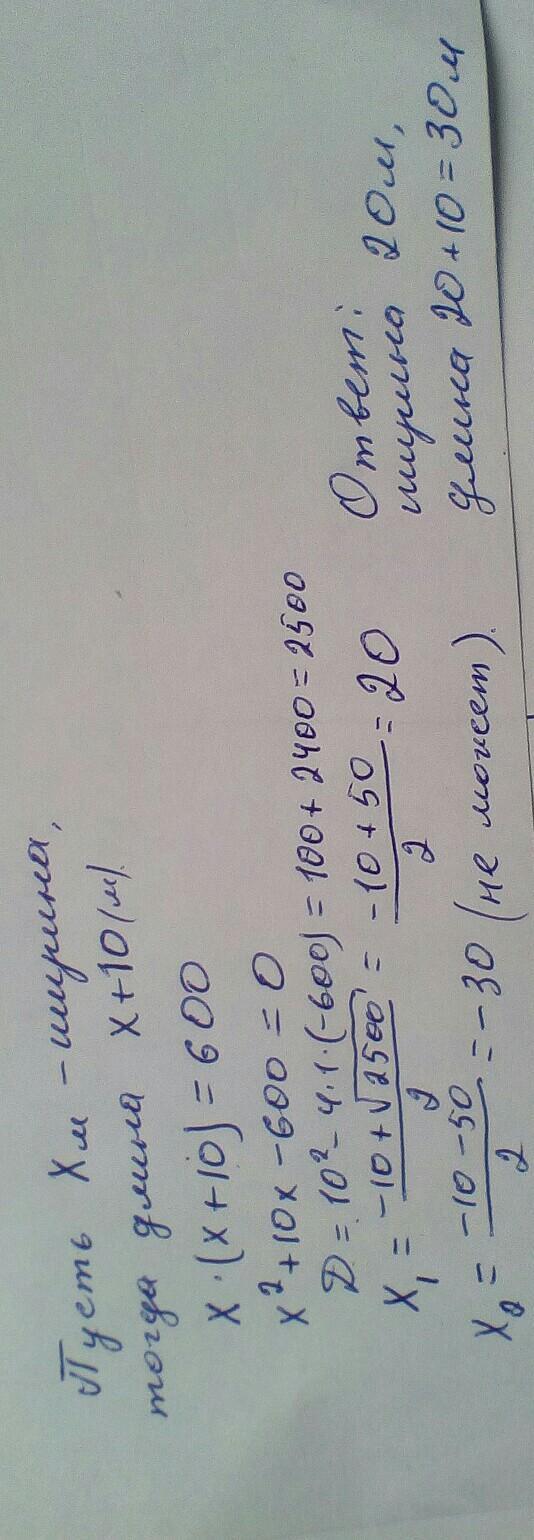 Пусть Xм - ширина,
тогда длина x+10(м).
x·(x+10)=600
x²+10x-600=0
D=10²-4·1·(-600)=100+2400=2500
x₁ = (-10+√2500)/2 = (-10+50)/2 = 20
x₂ = (-10-50)/2 = -30 (не может).
Ответ:
ширина 20м,
длина 20+10=30м